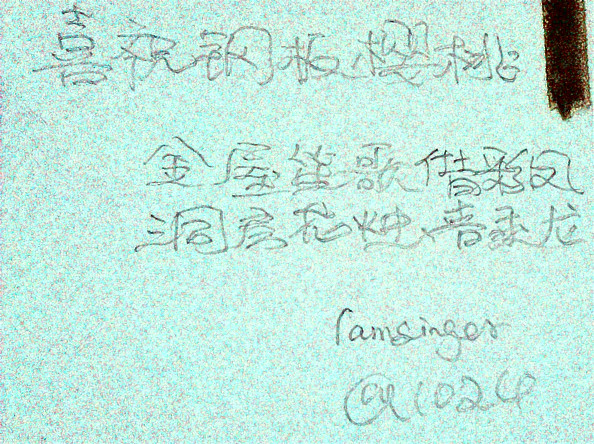 喜祝钢板樱桃
金屋笙歌偕彩凤
洞房花烛喜乘龙
Iamsinger
@1024